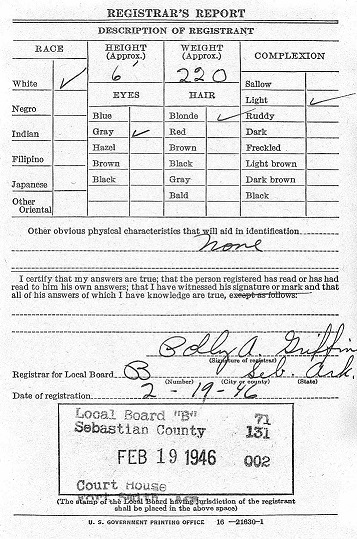 REGISTRAR'S REPORT
DESCRIPTION OF REGISTRANT
RACE HEIGHT (Approx.) WEIGHT (Approx.) COMPLEXION
6' 220
White ✓
Negro
Indian
Filipino
Japanese
Other Oriental
EYES
Blue
Gray ✓
Hazel
Brown
Black
HAIR
Blonde ✓
Red
Brown
Black
Gray
Bald
Sallow
Light ✓
Ruddy
Dark
Freckled
Light brown
Dark brown
Black
Other obvious physical characteristics that will aid in identification
None
I certify that my answers are true; that the person registered has read or has had
read to him his own answers; that I have witnessed his signature or mark and that
all of his answers of which I have knowledge are true, except as follows:
A. Griffin
(Signature of registrar)
Registrar for Local Board B Seb. Ark.
(Number) (City or county) (State)
Date of registration 2-19-46
Local Board "B" 71
Sebastian County 131
FEB 19 1946 002
Court House
Fort Smith, Ark.
(The stamp of the Local Board having jurisdiction of the registrant
shall be placed in the above space)
U. S. GOVERNMENT PRINTING OFFICE 16—21630-1